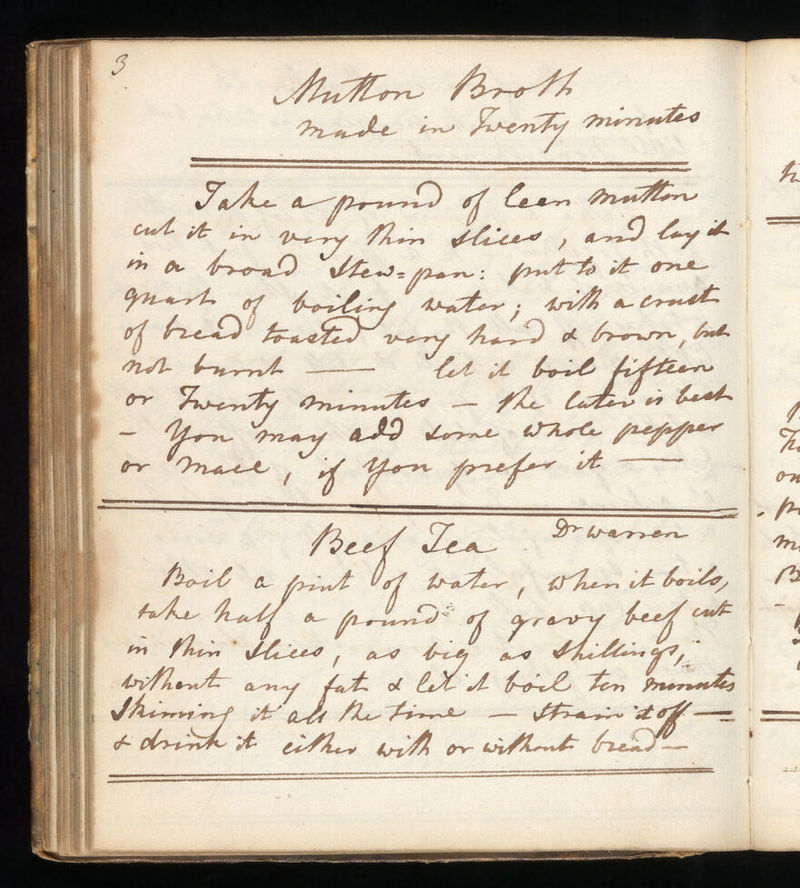 3
Mutton Broth
made in Twenty minutes
Take a pound of lean mutton
cut it in very thin slices, and lay it
in a broad Stew=pan: put to it one
quart of boiling water; with a crust
of bread toasted very hard & brown, but
not burnt — let it boil fifteen
or Twenty minutes — the later is best
— You may add some whole pepper
or mace, if you prefer it —
Beef Tea Dr Warren
Boil a pint of water, when it boils,
take half a pound of gravy beef cut
in thin slices, as big as shillings,
without any fat & let it boil ten minutes
Skiming it all the time — strain it off —
& drink it either with or without bread —